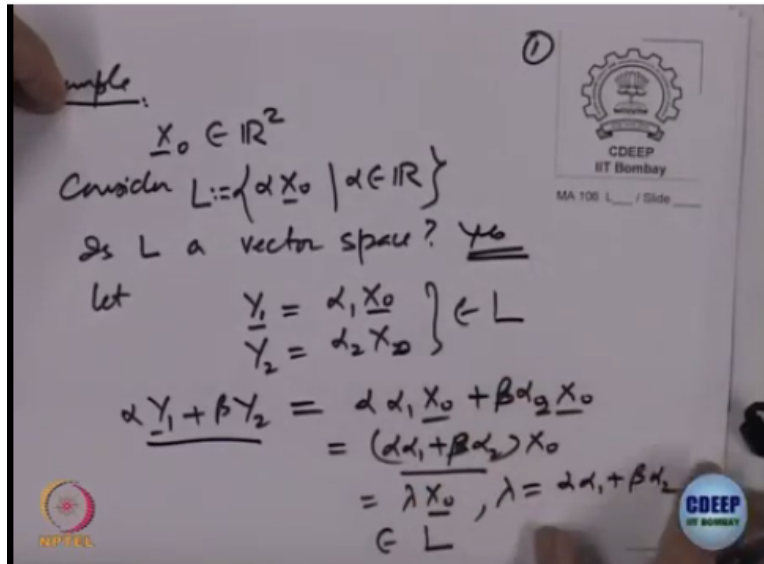 ①
CDEEP
IIT Bombay
MA 106 L___ / Slide ____
ample:
X₀ ∈ ℝ²
Consider L := { α X₀ | α ∈ ℝ }
Is L a vector space? Yes
let
Y₁ = α₁ X₀ } ∈ L
Y₂ = α₂ X₀
α Y₁ + β Y₂ = α α₁ X₀ + β α₂ X₀
= (α α₁ + β α₂) X₀
= λ X₀ , λ = α α₁ + β α₂
∈ L
NPTEL
CDEEP
IIT BOMBAY